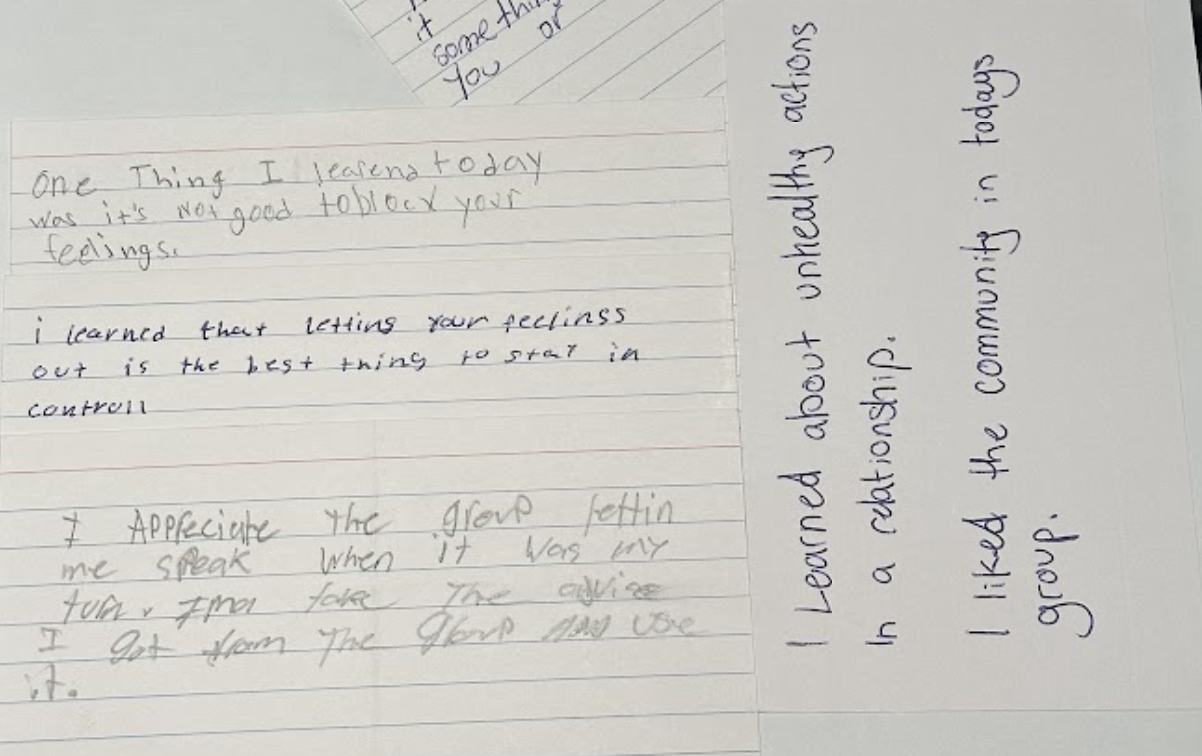 it
something
you or
One Thing I learend today
was it's not good to block your
feelings.
i learned that letting your feelings
out is the best thing to stay in
controll
I Appreciate the group lettin
me speak when it was my
turn. Ima take The advise
I got from The Group and use
it.
I Learned about unhealthy actions
In a relationship.
I liked the community in todays
group.